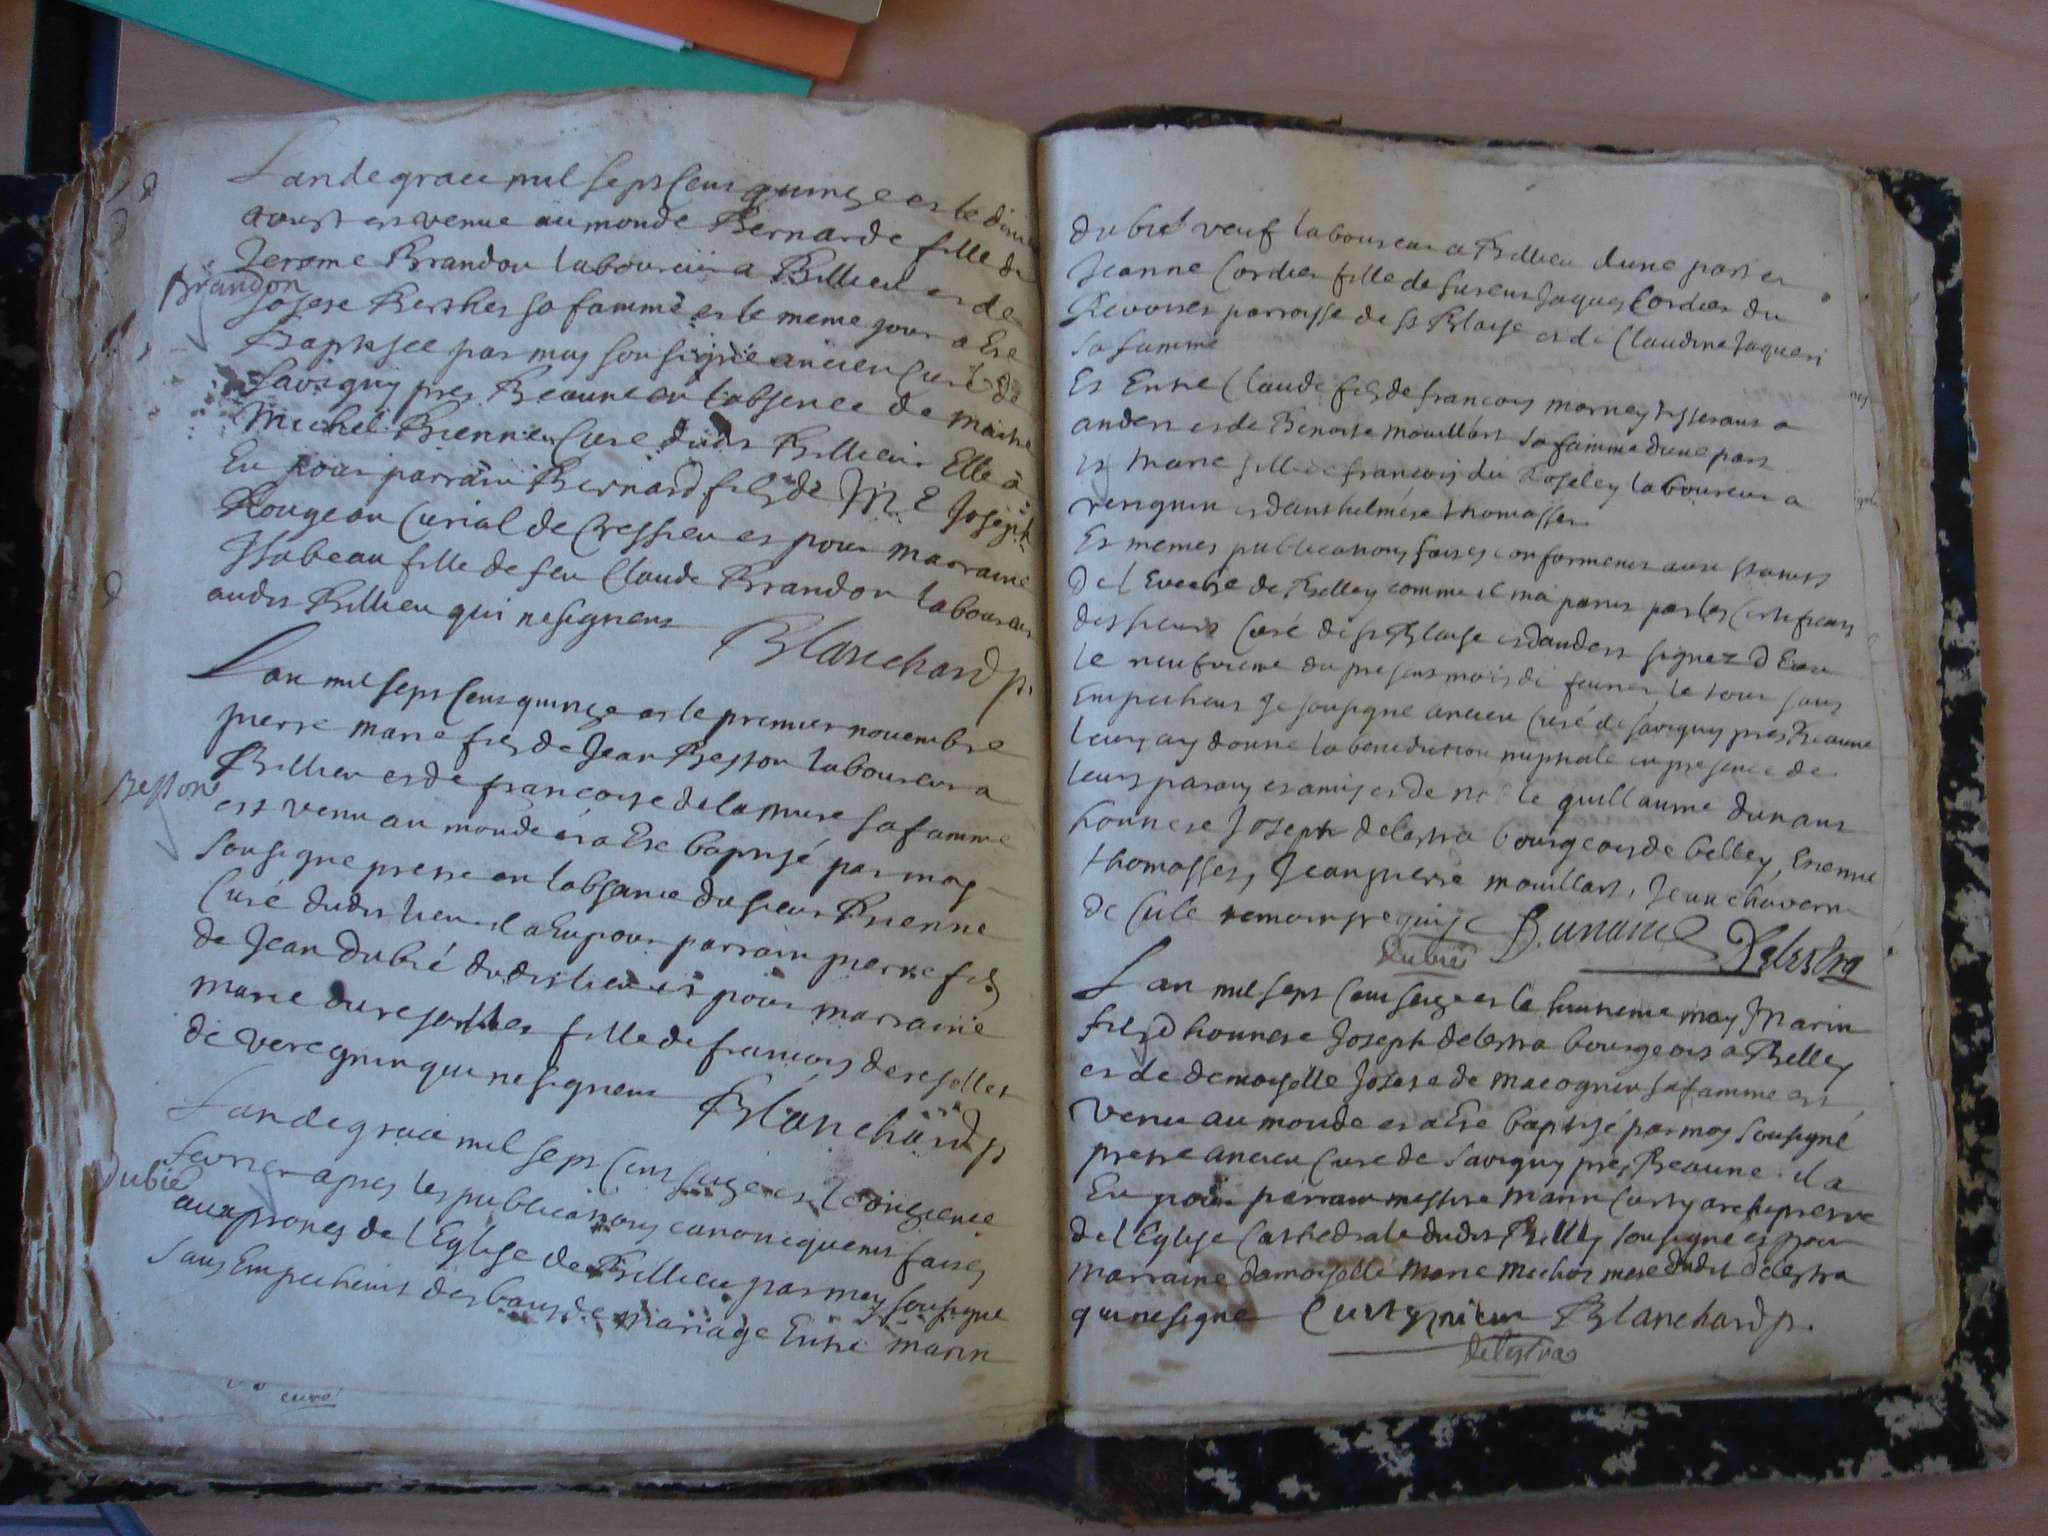 Lan de grace mil sept Cens quinze et le dixie
aoust est venue au monde Bernarde fille de
Jerome Brandon laboureur a Billieu et de
Brandon
Josete Berthet sa famme et le meme jour a Ete
Baptisee par moy sousigné ancien Curé de
Savigny pres Beaune en labsence de maitre
Michel Bienne Curé dudit Billieu Elle a
Eu pour parrain Bernard fils de M. E Joseph
Rougeau Curial de Cressieu et pour marraine
Isabeau fille de feu Claude Brandon laboureur
audit Billieu qui ne signent Blanchard p.
Lan mil sept Cens quinze et le premier novembre
pierre marie fils de Jean Besson laboureur a
Billieu et de francoise de la mure sa famme
Besson
est venu au monde et a Ete baptisé par moy
sousigne pretre en labsance du sieur Bienne
Curé dudit lieu il a Eu pour parrain pierre fils
de Jean Dubié dudit lieu et pour marraine
marie fille de francois
de veregnin qui ne signent Blanchard p
Lan de grace mil sept Cens seize et le onzieme
fevrier apres les publications canoniquement faites
Dubié
aux prones de lEglise de Billieu par moy sousigne
sans Empechement des bans de mariage Entre marin
curé
dubié veuf laboureur a Billieu dune part et
Jeanne Cordier fille de Jaques Cordier du
parroisse de st Blaise et de Claudine Jaquen
sa famme
Et Entre Claude fils de francois mornay tisserant a
andert et de Benoite mouillart sa famme dune part
et marie fille de francois du laboureur a
veregnin et danthelmére thomasset
Et memes publications faites conformement aux statuts
de lEveché de Belley comme il ma parut par les Certificats
des sieurs Curé de st Blaise et dandert signez d Eux
le neufvieme du present mois de fevrier le tout sans
Empechent Je sousigne ancien Curé de Savigny pres Beaune
leur ay donne la benediction nuptiale en presence de
leurs parans et amis et de guillaume dunant
honnete Joseph delestra bourgeois de belley, Etienne
thomasset, Jean pierre mouillart, Jean chavem
de Cule temoins requis Dunand Delestra
dubié
Lan mil sept Cens seize et le huitieme may Marin
fils d honnete Joseph delestra bourgeois a Belley
et de demoiselle Josete de macognin sa famme est
venu au monde et a Ete baptisé par moy sousigné
pretre ancien Curé de Savigny pres Beaune. il a
Eu pour parrain messire marin archipretre
de lEglise Cathedrale dudit Belley sousigne et pour
marraine damoiselle marie michot mere dudit delestra
qui ne signe Blanchard p.
delestra